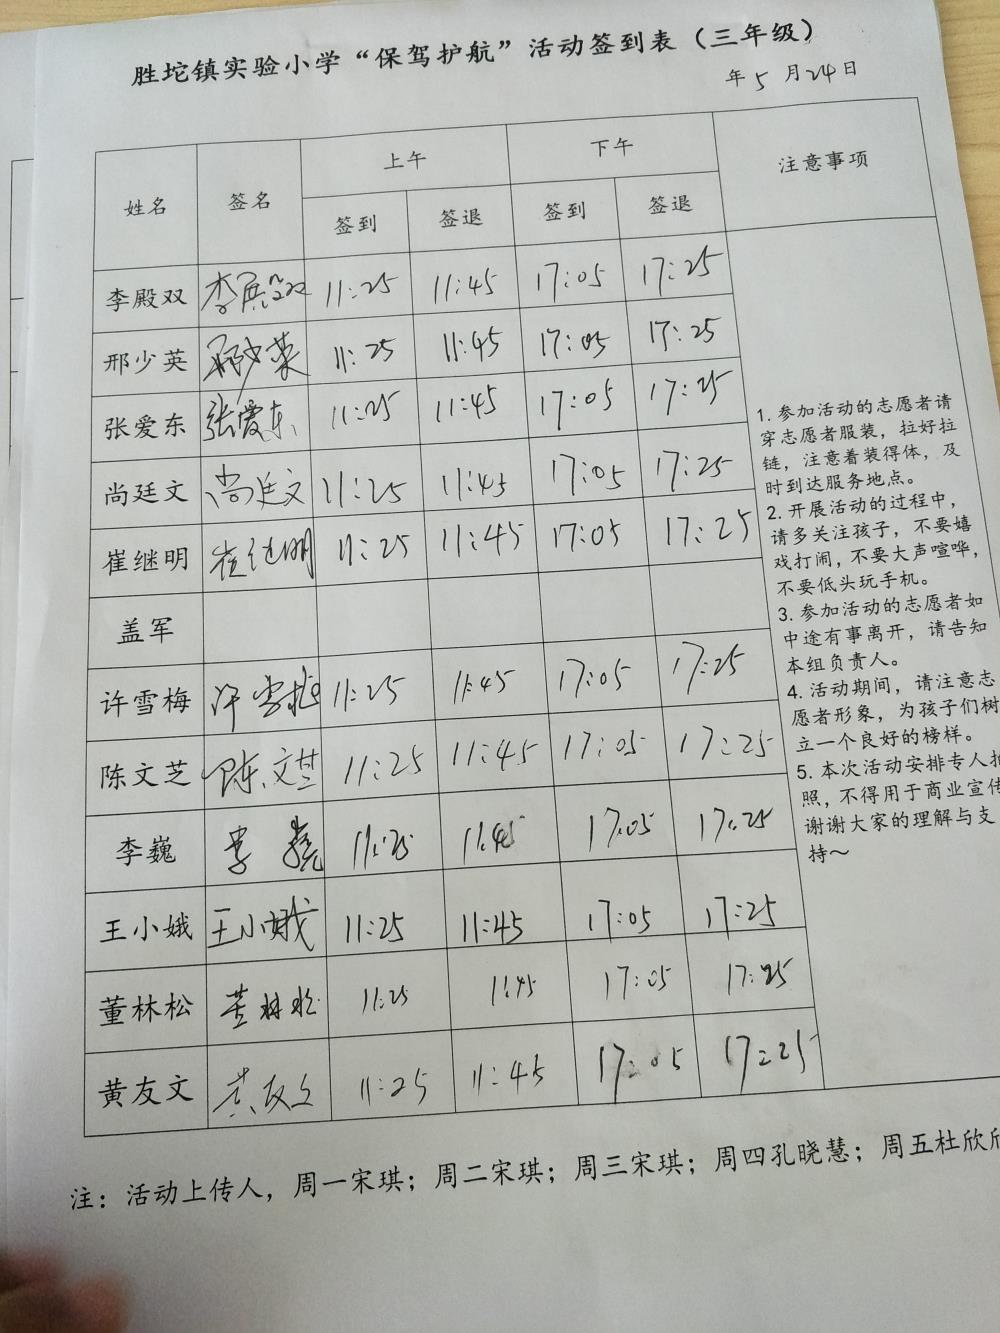 胜坨镇实验小学“保驾护航”活动签到表（三年级）
年 5 月 24 日
姓名 签名 上午 下午 注意事项
签到 签退 签到 签退
李殿双 李殿双 11:25 11:45 17:05 17:25
邢少英 邢少英 11:25 11:45 17:05 17:25
张爱东 张爱东 11:25 11:45 17:05 17:25
尚廷文 尚廷文 11:25 11:45 17:05 17:25
崔继明 崔继明 11:25 11:45 17:05 17:25
盖军
许雪梅 许雪梅 11:25 11:45 17:05 17:25
陈文芝 陈文芝 11:25 11:45 17:05 17:25
李巍 李巍 11:25 11:45 17:05 17:25
王小娥 王小娥 11:25 11:45 17:05 17:25
董林松 董林松 11:25 11:45 17:05 17:25
黄友文 黄友文 11:25 11:45 17:05 17:25
1. 参加活动的志愿者请
穿志愿者服装，拉好拉
链，注意着装得体，及
时到达服务地点。
2. 开展活动的过程中，
请多关注孩子，不要嬉
戏打闹，不要大声喧哗，
不要低头玩手机。
3. 参加活动的志愿者如
中途有事离开，请告知
本组负责人。
4. 活动期间，请注意志
愿者形象，为孩子们树
立一个良好的榜样。
5. 本次活动安排专人拍
照，不得用于商业宣传
谢谢大家的理解与支
持～
注：活动上传人，周一宋琪；周二宋琪；周三宋琪；周四孔晓慧；周五杜欣欣